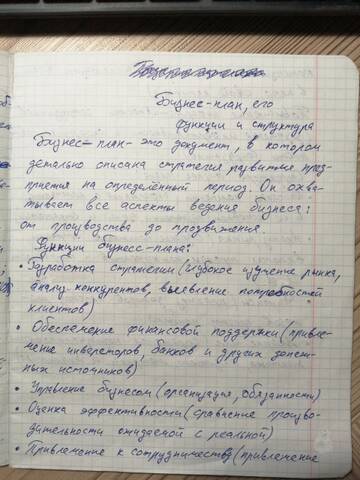 Бизнес-план, его
функции и структура
Бизнес-план-это документ, в котором
детально описана стратегия развития пред-
приятия на определённый период. Он охва-
тывает все аспекты ведения бизнеса:
от производства до продвижения.
Функции бизнес-плана:
• Разработка стратегии (глубокое изучение рынка,
анализ конкурентов, выявление потребностей
клиентов)
• Обеспечение финансовой поддержки (привле-
чение инвесторов, банков и других денеж-
ных источников)
• Управление бизнесом (организация, обязанности)
• Оценка эффективности (сравнение произво-
дительности ожидаемой с реальной)
• Привлечение к сотрудничеству (привлечение